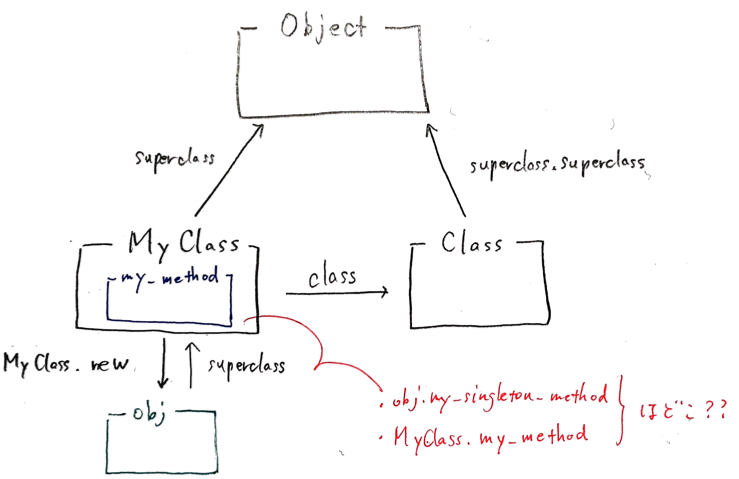 Object
superclass
superclass.superclass
My Class
Class
my_method
class
MyClass.new
superclass
obj
・obj.my_singleton_method
・MyClass.my_method
はどこ??